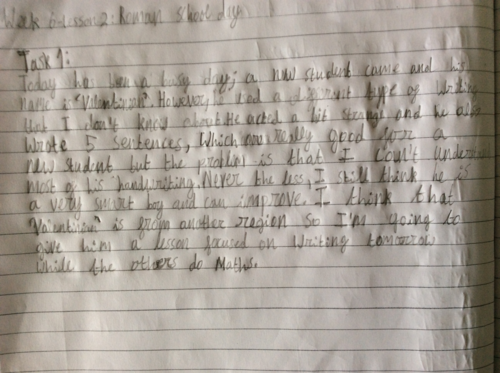 Week 6-Lesson 2: Roman school day
Task 1:
Today has been a busy day; a new student came and his
name is "Valentinian". However, he had a different type of writing
that I don't know about. He acted a bit strange and he also
wrote 5 sentences, which was really good for a
new student but the problem is that I can't understand
most of his handwriting. Never the less, I still think he is
a very smart boy and can improve. I think that
"Valentinian" is from another region so I'm going to
give him a lesson focused on writing tomorrow
while the others do Maths.